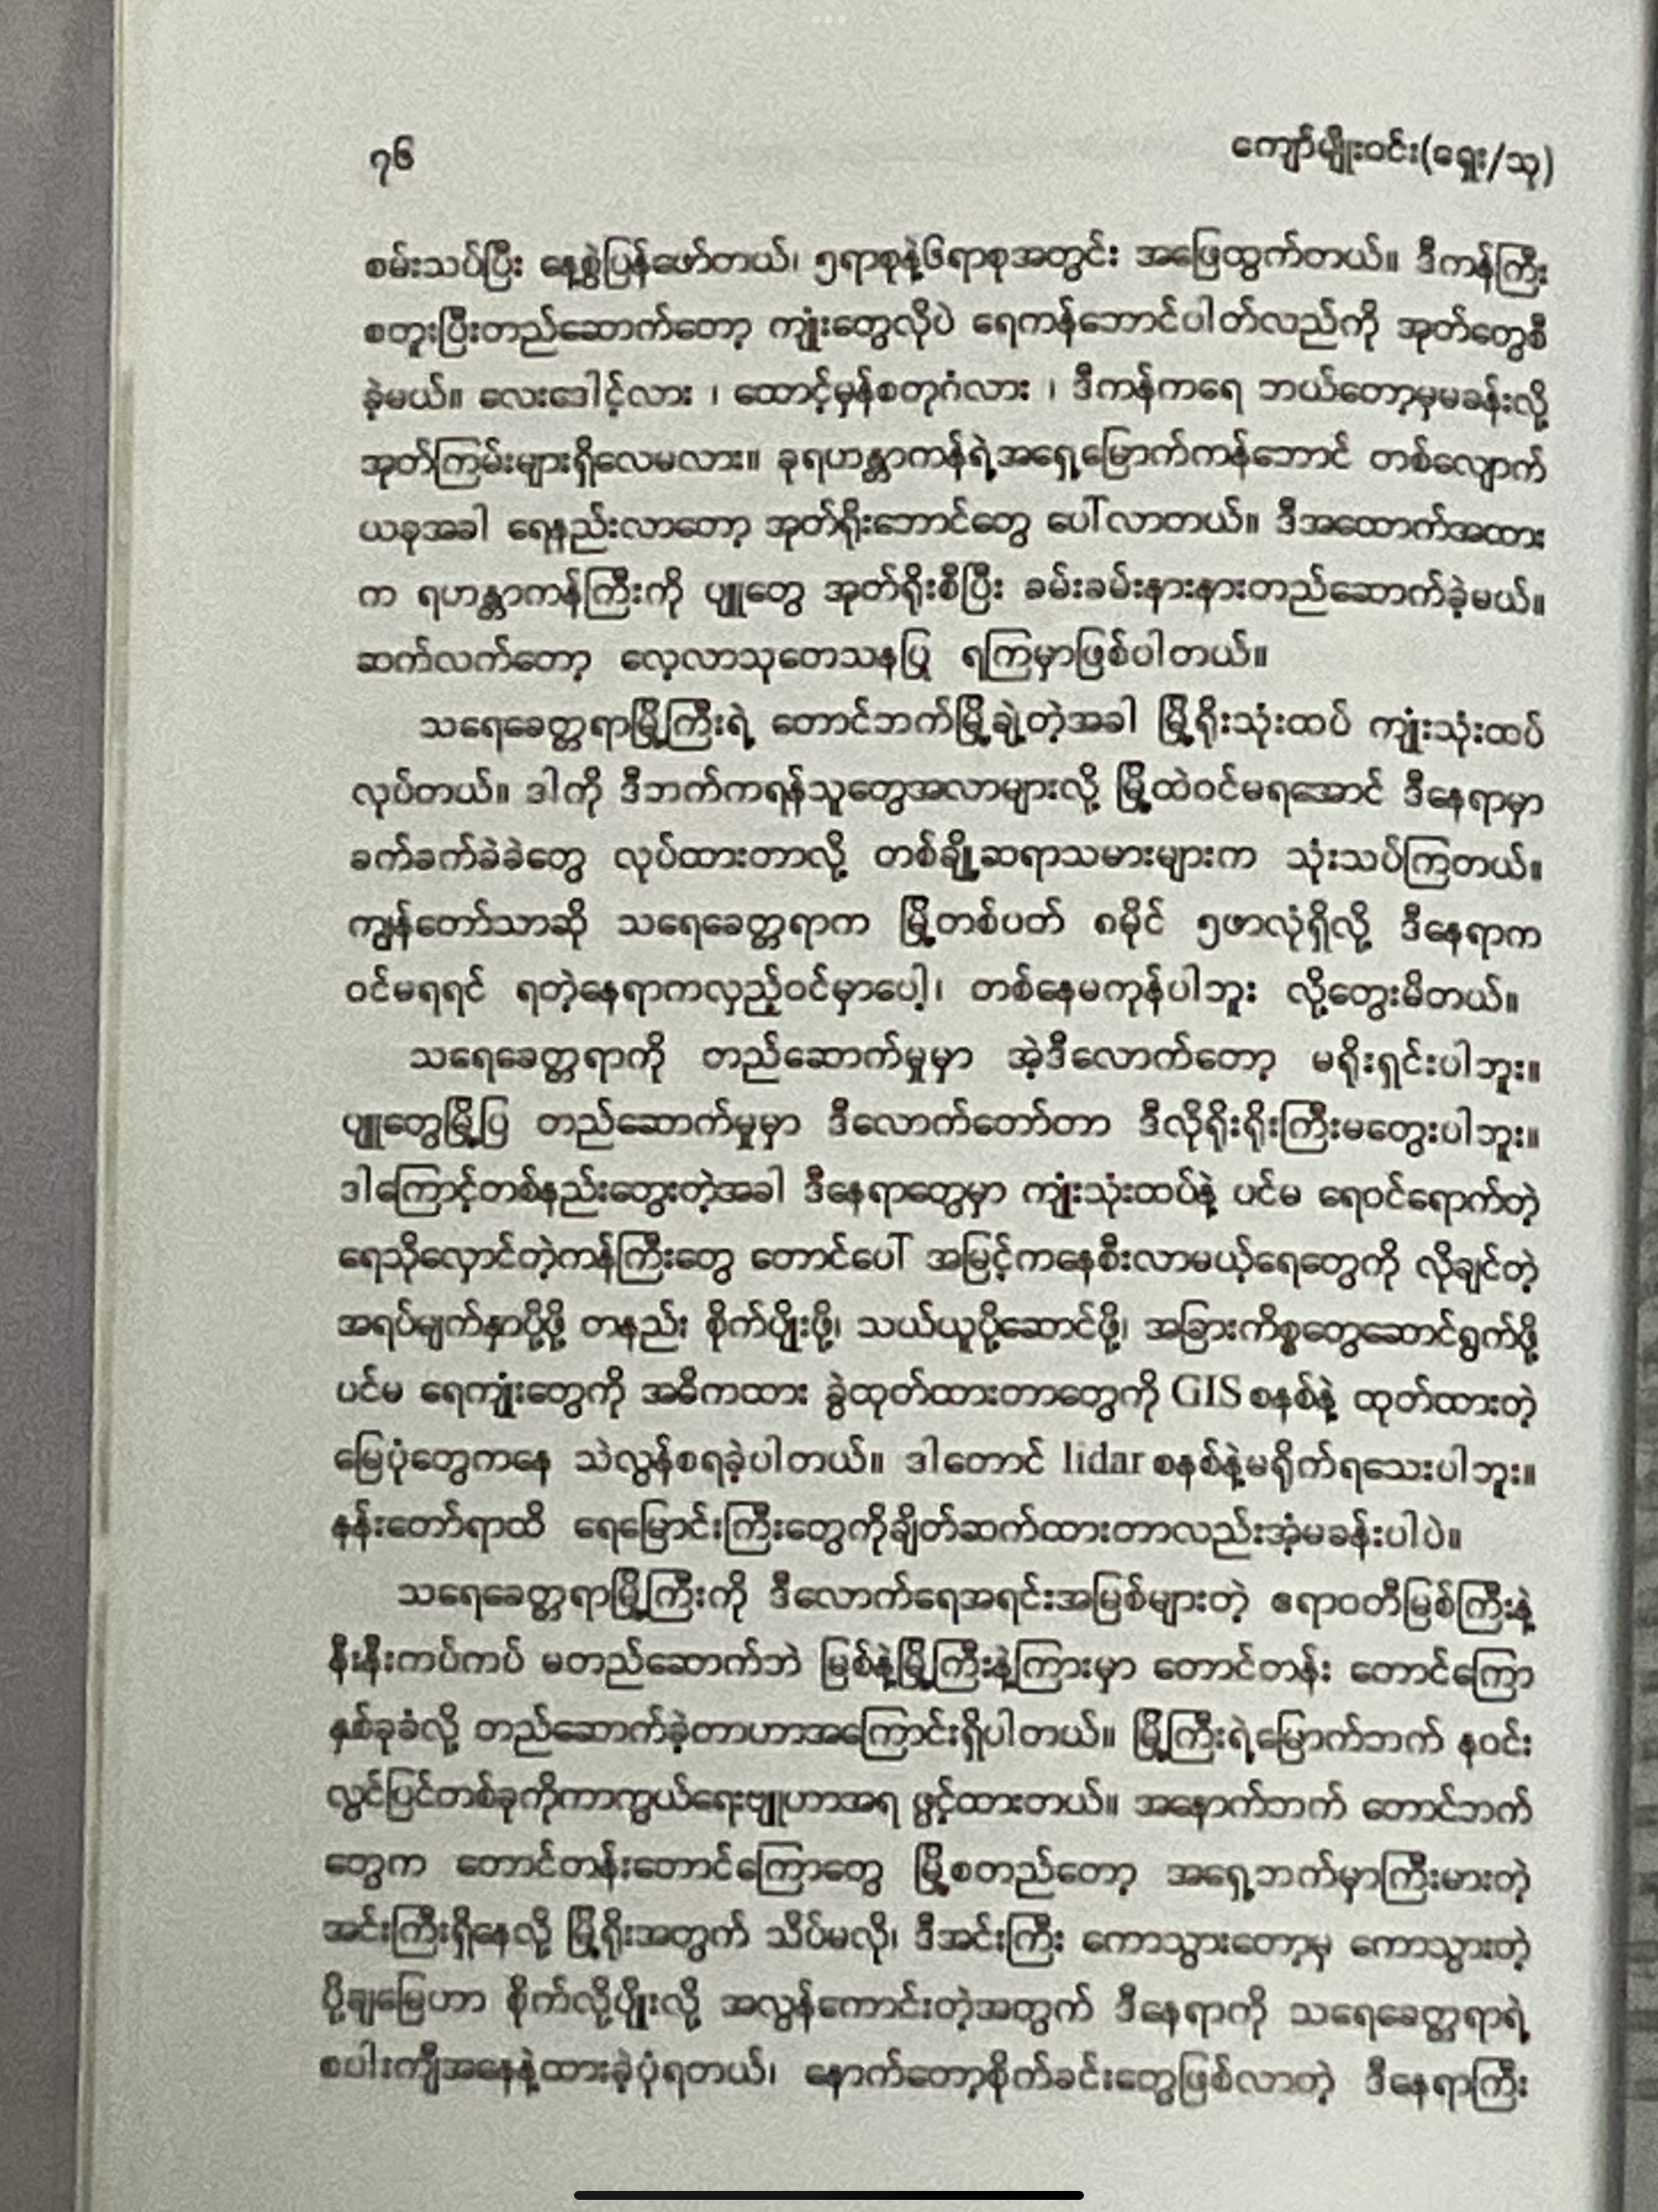 ၇၆ ကျော်မျိုးဝင်း(ရှေး/သု)
စမ်းသပ်ပြီး နေ့စွဲပြန်ဖော်တယ်၊ ၅ရာစုနဲ့၆ရာစုအတွင်း အဖြေထွက်တယ်။ ဒီကန်ကြီး
စတူးပြီးတည်ဆောက်တော့ ကျုံးတွေလိုပဲ ရေကန်ဘောင်ပါတ်လည်ကို အုတ်တွေစီ
ခဲ့မယ်။ လေးဒေါင့်လား ၊ ထောင့်မှန်စတုဂံလား ၊ ဒီကန်ကရေ ဘယ်တော့မှမခန်းလို့
အုတ်ကြမ်းများရှိလေမလား။ ခုရဟန္တာကန်ရဲ့အရှေ့မြောက်ကန်ဘောင် တစ်လျှောက်
ယခုအခါ ရေနည်းလာတော့ အုတ်ရိုးဘောင်တွေ ပေါ်လာတယ်။ ဒီအထောက်အထား
က ရဟန္တာကန်ကြီးကို ပျူတွေ အုတ်ရိုးစီပြီး ခမ်းခမ်းနားနားတည်ဆောက်ခဲ့မယ်။
ဆက်လက်တော့ လေ့လာသုတေသနပြု ရကြမှာဖြစ်ပါတယ်။
သရေခေတ္တရာမြို့ကြီးရဲ့ တောင်ဘက်မြို့ချဲ့တဲ့အခါ မြို့ရိုးသုံးထပ် ကျုံးသုံးထပ်
လုပ်တယ်။ ဒါကို ဒီဘက်ကရန်သူတွေအလာများလို့ မြို့ထဲဝင်မရအောင် ဒီနေရာမှာ
ခက်ခက်ခဲခဲတွေ လုပ်ထားတာလို့ တစ်ချို့ဆရာသမားများက သုံးသပ်ကြတယ်။
ကျွန်တော်သာဆို သရေခေတ္တရာက မြို့တစ်ပတ် ၈မိုင် ၅ဖာလုံရှိလို့ ဒီနေရာက
ဝင်မရရင် ရတဲ့နေရာကလှည့်ဝင်မှာပေါ့၊ တစ်နေမကုန်ပါဘူး လို့တွေးမိတယ်။
သရေခေတ္တရာကို တည်ဆောက်မှုမှာ အဲ့ဒီလောက်တော့ မရိုးရှင်းပါဘူး။
ပျူတွေမြို့ပြ တည်ဆောက်မှုမှာ ဒီလောက်တော်တာ ဒီလိုရိုးရိုးကြီးမတွေးပါဘူး။
ဒါကြောင့်တစ်နည်းတွေးတဲ့အခါ ဒီနေရာတွေမှာ ကျုံးသုံးထပ်နဲ့ ပင်မ ရေဝင်ရောက်တဲ့
ရေသိုလှောင်တဲ့ကန်ကြီးတွေ တောင်ပေါ် အမြင့်ကနေစီးလာမယ့်ရေတွေကို လိုချင်တဲ့
အရပ်မျက်နှာပို့ဖို့ တနည်း စိုက်ပျိုးဖို့၊ သယ်ယူပို့ဆောင်ဖို့၊ အခြားကိစ္စတွေဆောင်ရွက်ဖို့
ပင်မ ရေကျုံးတွေကို အဓိကထား ခွဲထုတ်ထားတာတွေကို GIS စနစ်နဲ့ ထုတ်ထားတဲ့
မြေပုံတွေကနေ သဲလွန်စရခဲ့ပါတယ်။ ဒါတောင် lidar စနစ်နဲ့မရိုက်ရသေးပါဘူး။
နန်းတော်ရာထိ ရေမြောင်းကြီးတွေကိုချိတ်ဆက်ထားတာလည်းအံ့မခန်းပါပဲ။
သရေခေတ္တရာမြို့ကြီးကို ဒီလောက်ရေအရင်းအမြစ်များတဲ့ ဧရာဝတီမြစ်ကြီးနဲ့
နီးနီးကပ်ကပ် မတည်ဆောက်ဘဲ မြစ်နဲ့မြို့ကြီးနဲ့ကြားမှာ တောင်တန်း တောင်ကြော
နှစ်ခုခံလို့ တည်ဆောက်ခဲ့တာဟာအကြောင်းရှိပါတယ်။ မြို့ကြီးရဲ့မြောက်ဘက် နဝင်း
လွင်ပြင်တစ်ခုကိုကာကွယ်ရေးဗျူဟာအရ ဖွင့်ထားတယ်။ အနောက်ဘက် တောင်ဘက်
တွေက တောင်တန်းတောင်ကြောတွေ မြို့စတည်တော့ အရှေ့ဘက်မှာကြီးမားတဲ့
အင်းကြီးရှိနေလို့ မြို့ရိုးအတွက် သိပ်မလို၊ ဒီအင်းကြီး ကောသွားတော့မှ ကောသွားတဲ့
ပို့ချမြေဟာ စိုက်လို့ပျိုးလို့ အလွန်ကောင်းတဲ့အတွက် ဒီနေရာကို သရေခေတ္တရာရဲ့
စပါးကျီအနေနဲ့ထားခဲ့ပုံရတယ်၊ နောက်တော့စိုက်ခင်းတွေဖြစ်လာတဲ့ ဒီနေရာကြီး